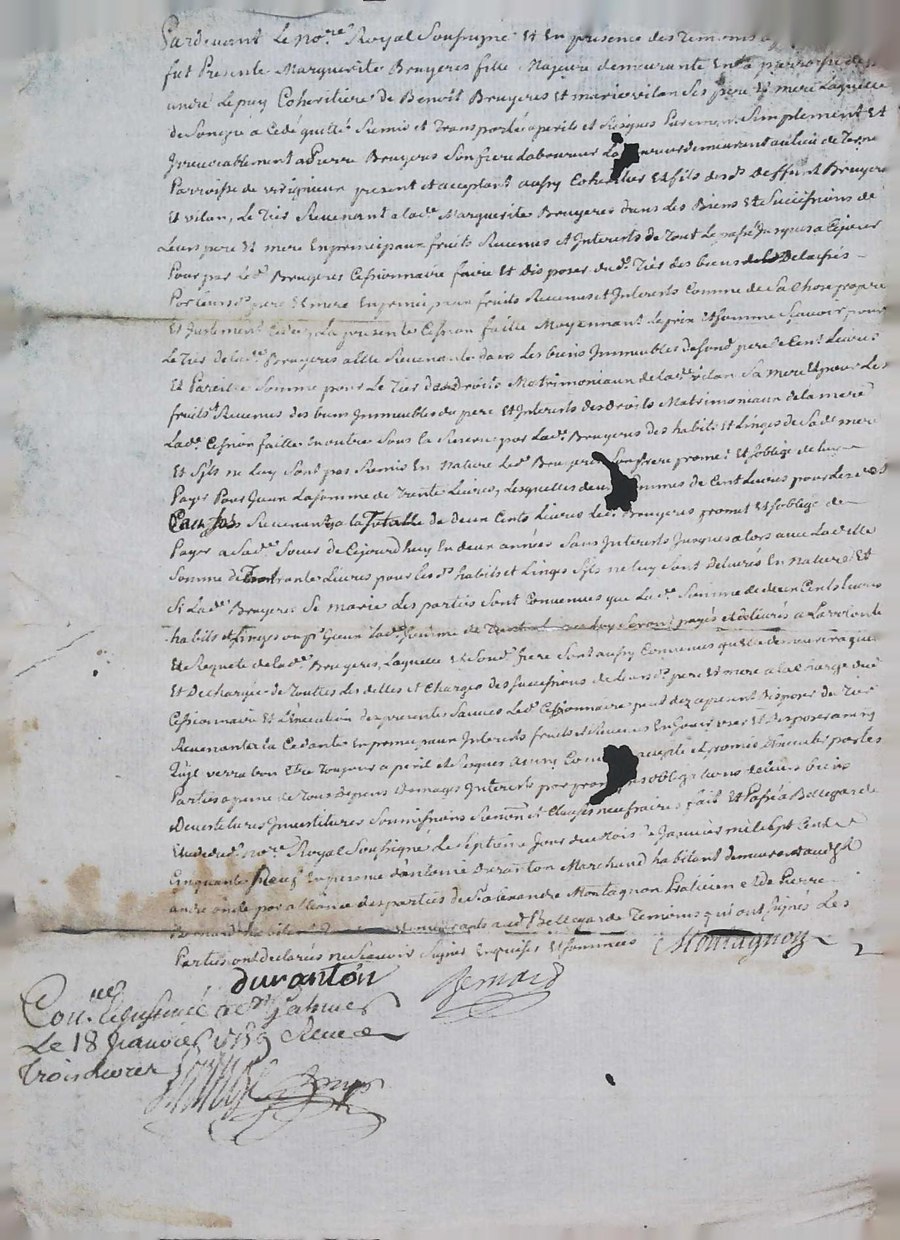 Pardevant Le no.re Royal Soussigné Et En presence des Temoins
fut Presente Marguerite Bruyeres fille Majeure demeurante En la parroisse de S.t
andré Le puy Coheritiere de Benoit Bruyeres Et marie vilan Ses pere Et mere Laquelle
de Son gre a Cedé quitté Remis et Transporté a perils et Risques Purement Simplement Et
Irrevocablement a Pierre Bruyeres Son frere Laboureur demeurant au Lieu de
Parroisse de verigneux present et aceptant aussy Coheritier Et fils desd.s Deffunt Bruyeres
Et vilan, Le Tiers Revenant a lad.e Marguerite Bruyeres dans Les Biens Et Successions de
Leurs pere Et mere En principaux fruits Revenus et Interests de Tout Le passé Jusques a Cejour
Pour par Led. Bruyeres Cessionnaire faire Et disposer dud. Tiers des biens Delaissés
Par Leursd. pere Et mere En principaux fruits Revenus et Interests Comme de Sa Chose propre
Et Justement La presente Cession faitte Moyennant Le prix Et Somme Scavoir pour
Le Tiers de lad.e Bruyeres a Elle Revenante dans Les biens Immeubles de Sond. pere de Cent Livres
Et Pareille Somme pour Le Tiers des droits Matrimoniaux de lad.e vilan Sa mere Et pour Les
fruits Revenus des biens Immeubles du pere Et Interests des droits Matrimoniaux de la mere
Lad.e Cession faitte En outre Sous la Reserve par Lad.e Bruyeres des habits Et Linges de Sad.e mere
Et Sils ne Luy Sont pas Remis En Nature Led. Bruyeres Son frere promet Et Soblige de luy
Payer Pour Iceux La Somme de Trente Livres, Lesquelles deux Sommes de Cent Livres pour Les
Revenants a la Totalle de deux Cents Livres Led. Bruyeres promet Et Soblige de
Payer a Sad.e Soeur de Cejourdhuy En deux années Sans Interests Jusques alors avec Lad.e
Somme de Trante Livres pour Lesd. habits et Linges Sils ne luy Sont delivrés En Nature Et
Si Lad.e Bruyeres Se marie Les parties Sont Convenues que Lad.e Somme de deux Cents Livres
habits et Linges ou pr Iceux Lad.e Somme de luy Seront payés et delivrés a La volonté
Et Requete de lad.e Bruyeres, Laquelle et Sond. frere Sont aussy Convenus quelle demeurera quitte
Et Dechargée de Touttes Les dettes et Charges des Successions de Leursd. pere Et mere a la Charge dud.
Cessionnaire Et L'Execution des presentes Led. Cessionnaire peut dez apresent disposer du Tiers
Revenant a la Cedante En principaux Interests fruits et Revenus En Jouir user Et disposer ainsy
Quil verra bon Etre Toujours a peril et Risques accepté et promis Executé par les
Parties a peine de Tous depens Domages Interests par obligations de leurs biens
Devestitures Investitures Soumissions Renon.ns et Clauses necessaires fait Et Passé a Bellegarde
Etude dud. no.re Royal Soussigné Le Septieme Jour du Mois de Janvier mil Sept Cent
Cinquante Neuf En presence d'antoine Duranton Marchand habitant demeurant aud. S.t
andré oncle par alliance des parties de S.r alexandre Montagnon Praticien Et de Pierre
Bernard habitant aud. Bellegarde Temoins qui ont Signés Les
Parties ont declarés ne Scavoir Signer Enquises Et Sommées
Montagnon
duranton
Bernard
Con.lé
Le 18 Janvier 1759 Receu
Trois livres